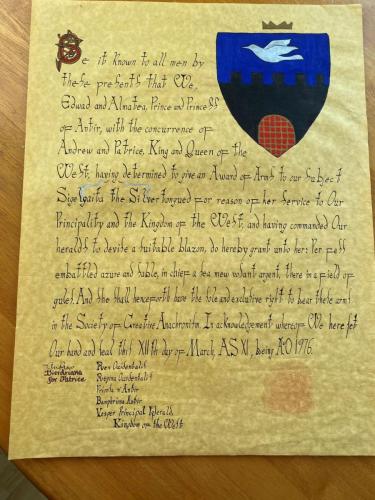 Be it known to all men by
these presents that We,
Edwad and Almatea, Prince and Princess
of Antir, with the concurrence of
Andrew and Patrice, King and Queen of the
West, having determined to give an Award of Arms to our subject
the Silvertongued for reason of her service to Our
Principality and the Kingdom of the West, and having commanded Our
heralds to devise a suitable blazon, do hereby grant unto her: Per fess
embattled azure and sable, in chief a sea mew volant argent, there in a field of
gules. And she shall henceforth have the sole and exclusive right to bear these arms
in the Society of Creative Anachronism. In acknowledgement whereof We here set
Our hand and seal this XIIth day of March, AS XI, being AD 1976.
for Patrice
Antir
Vesper Principal Herald
Kingdom of the West